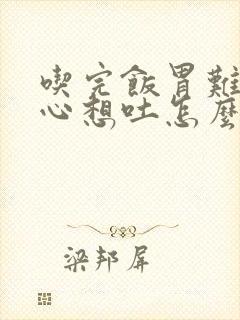 喫完飯胃難
心想吐怎麼
梁邦屏